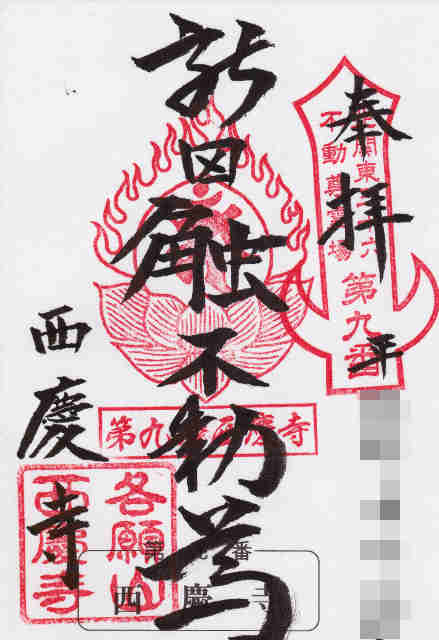 奉拝
北関東三十六
不動尊霊場
第九番
平
新田触不動尊
第九番西慶寺
西慶寺
各願山
西慶寺
第九番
西慶寺